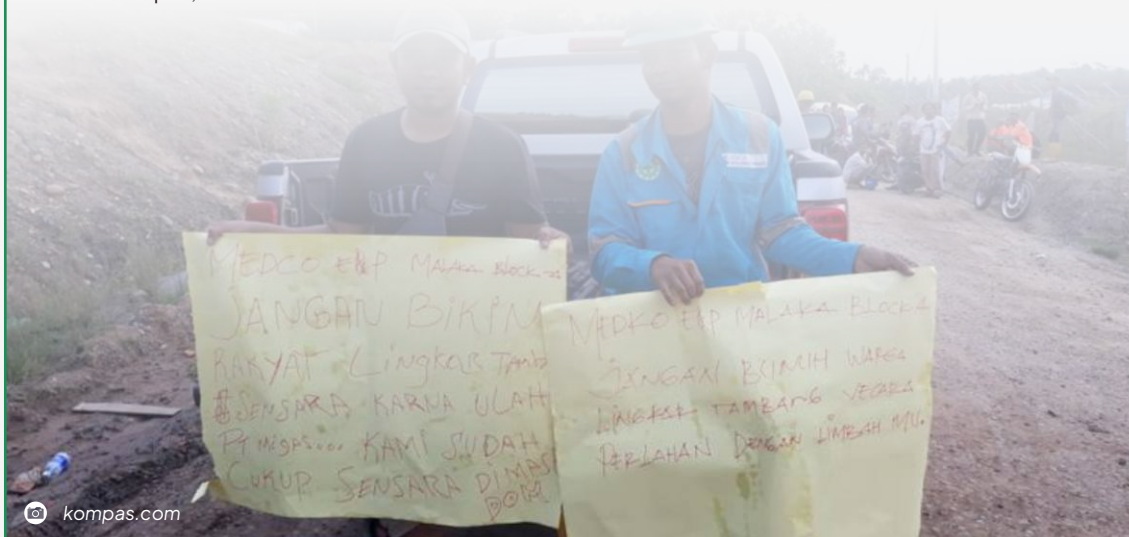 MEDCO E&P MALAKA BLOCK-A
JANGAN BIKIN
RAKYAT LINGKAR TAMB
SENSARA KARNA ULAH
PT MIGAS... KAMI SUDAH
CUKUP SENSARA DIMASA
DOM
MEDKO E&P MALAKA BLOCK A
JANGAN BUNUH WARGA
LINGKAR TAMBANG
PERLAHAN DENGAN LIMBAH MU.
kompas.com